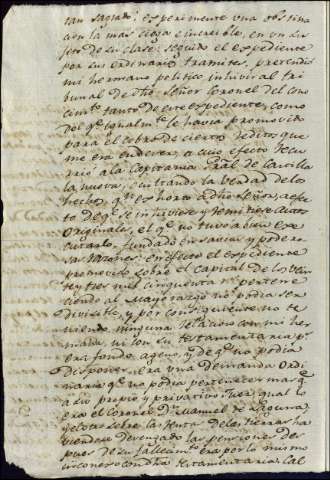 tan sagrado: esperimente una obstina
cion la mas ciega e increible, en un su
jeto de su clase: seguido el expediente
por sus ordinarios tramites, pretendió
mi hermano politico inhivir al tri
bunal de dho. Señor Coronel del cono
cimto. tanto de este expediente, como
del qe. igualmte. le havia promovido
para el cobro de ciertos reditos que
me era endever, a cuio efecto recu
rrió a la Capitania Gral. de Castilla
la nueva, ocultando la verdad de los
hechos, qe. es horto a dho Señor, a efec
to de qe. se inhiviese y remitiese autos
originales, el qe. no tuvo a bien exe
cutarlo, fundado en savias y podero
sas razones: en efecto el expediente
promovido sobre el capital de los vein
te y tres mil cinquenta rs. pertene
ciendo al Mayorazgo no podia ser
divisible, y por consiguiente no te
niendo ninguna relacion con mi her
mana, ni con su testamentaria pr.
era fondo ageno, y de qe. no podia
disponer, era una demanda ordi
naria qe. no podia pertenecer mas qe.
a su propio y privativo Juez qual lo
era el Coronel Dn. Manuel de Laguna,
y el otro sobre la renta de las tierras ha
viendose devengado las pensiones des
pues de su fallecimto. era por lo mismo
inconero contra testamentaria: cal